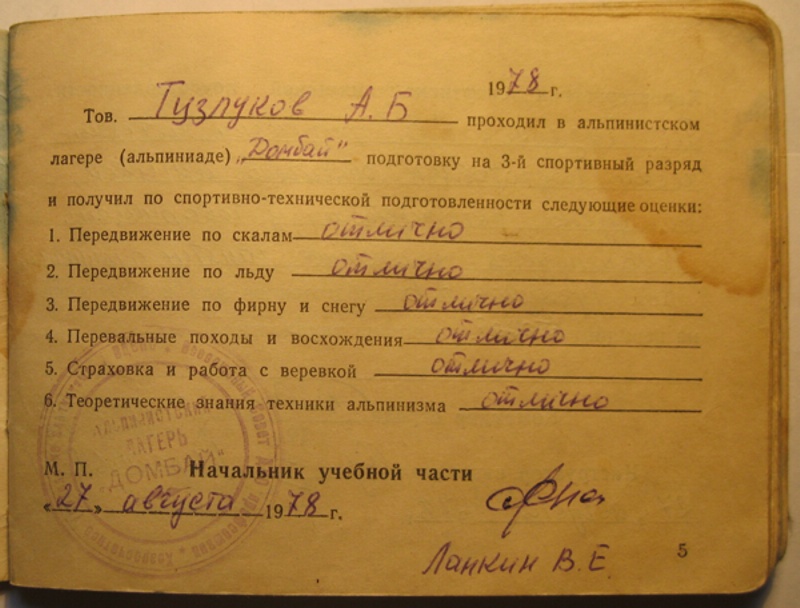 1978 г.
Тов. Тузлуков А.Б проходил в альпинистском
лагере (альпиниаде) „Домбай" подготовку на 3-й спортивный разряд
и получил по спортивно-технической подготовленности следующие оценки:
1. Передвижение по скалам отлично
2. Передвижение по льду отлично
3. Передвижение по фирну и снегу отлично
4. Перевальные походы и восхождения отлично
5. Страховка и работа с веревкой отлично
6. Теоретические знания техники альпинизма отлично
АЛЬПИНИСТСКИЙ
ЛАГЕРЬ
„ДОМБАЙ"
М. П. Начальник учебной части
«27» августа 1978 г.
Ланкин В.Е.
5